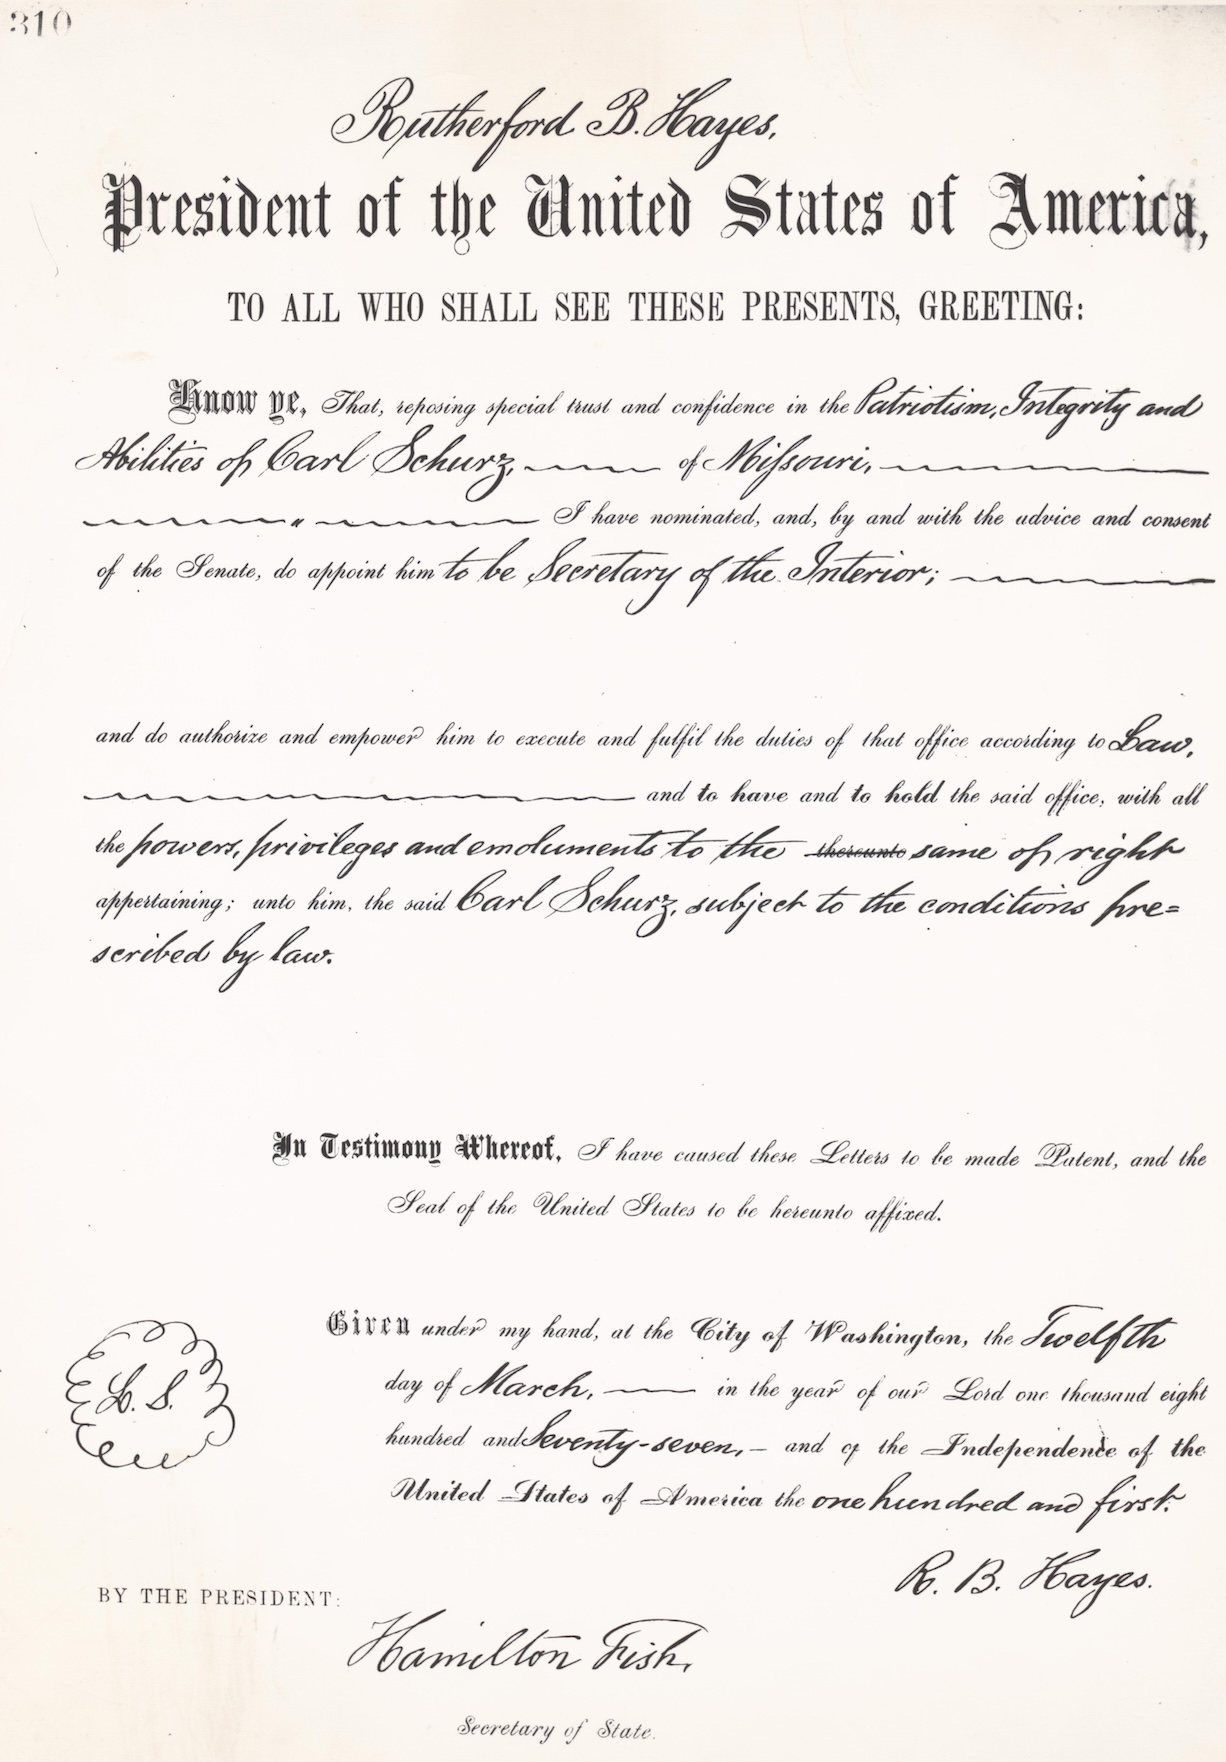 310
Rutherford B. Hayes,
President of the United States of America,
TO ALL WHO SHALL SEE THESE PRESENTS, GREETING:
Know ye, That, reposing special trust and confidence in the Patriotism, Integrity and
Abilities of Carl Schurz, of Missouri,
I have nominated, and, by and with the advice and consent
of the Senate, do appoint him to be Secretary of the Interior;
and do authorize and empower him to execute and fulfil the duties of that office according to Law,
and to have and to hold the said office, with all
the powers, privileges and emoluments to the thereunto same of right
appertaining; unto him, the said Carl Schurz, subject to the conditions pre=
scribed by law.
In Testimony Whereof, I have caused these Letters to be made Patent, and the
Seal of the United States to be hereunto affixed.
Given under my hand, at the City of Washington, the Twelfth
day of March, in the year of our Lord one thousand eight
hundred and Seventy-seven, — and of the Independence of the
L. S.
United States of America the one hundred and first.
R. B. Hayes.
BY THE PRESIDENT:
Hamilton Fish,
Secretary of State.